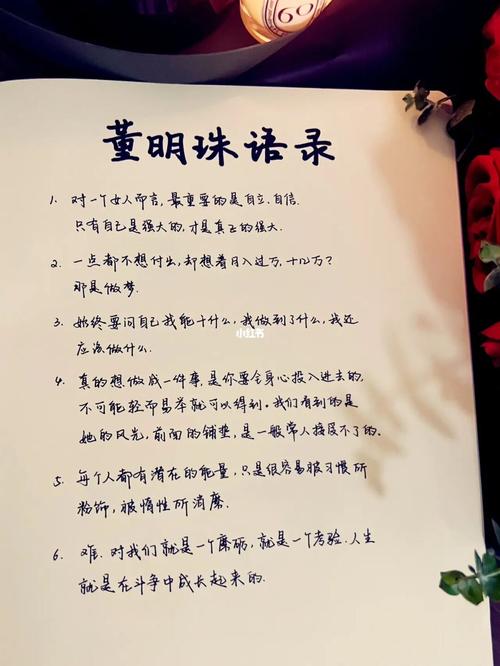 董明珠语录
1. 对一个女人而言,最重要的是自立.自信.
只有自己是强大的,才是真正的强大.
2. 一点都不想付出,却想着月入过万,十几万?
那是做梦.
3. 始终要问自己我能干什么,我做到了什么,我还
应该做什么.
小红书
4. 真的想做成一件事,是你要全身心投入进去的,
不可能轻而易举就可以得到。我们看到的是
她的风光,前面的铺垫,是一般常人接受不了的。
5. 每个人都有潜在的能量,只是很容易被习惯所
粉饰,被惰性所消磨.
6. 难.对我们就是一个磨砺,就是一个考验.人生
就是在斗争中成长起来的.